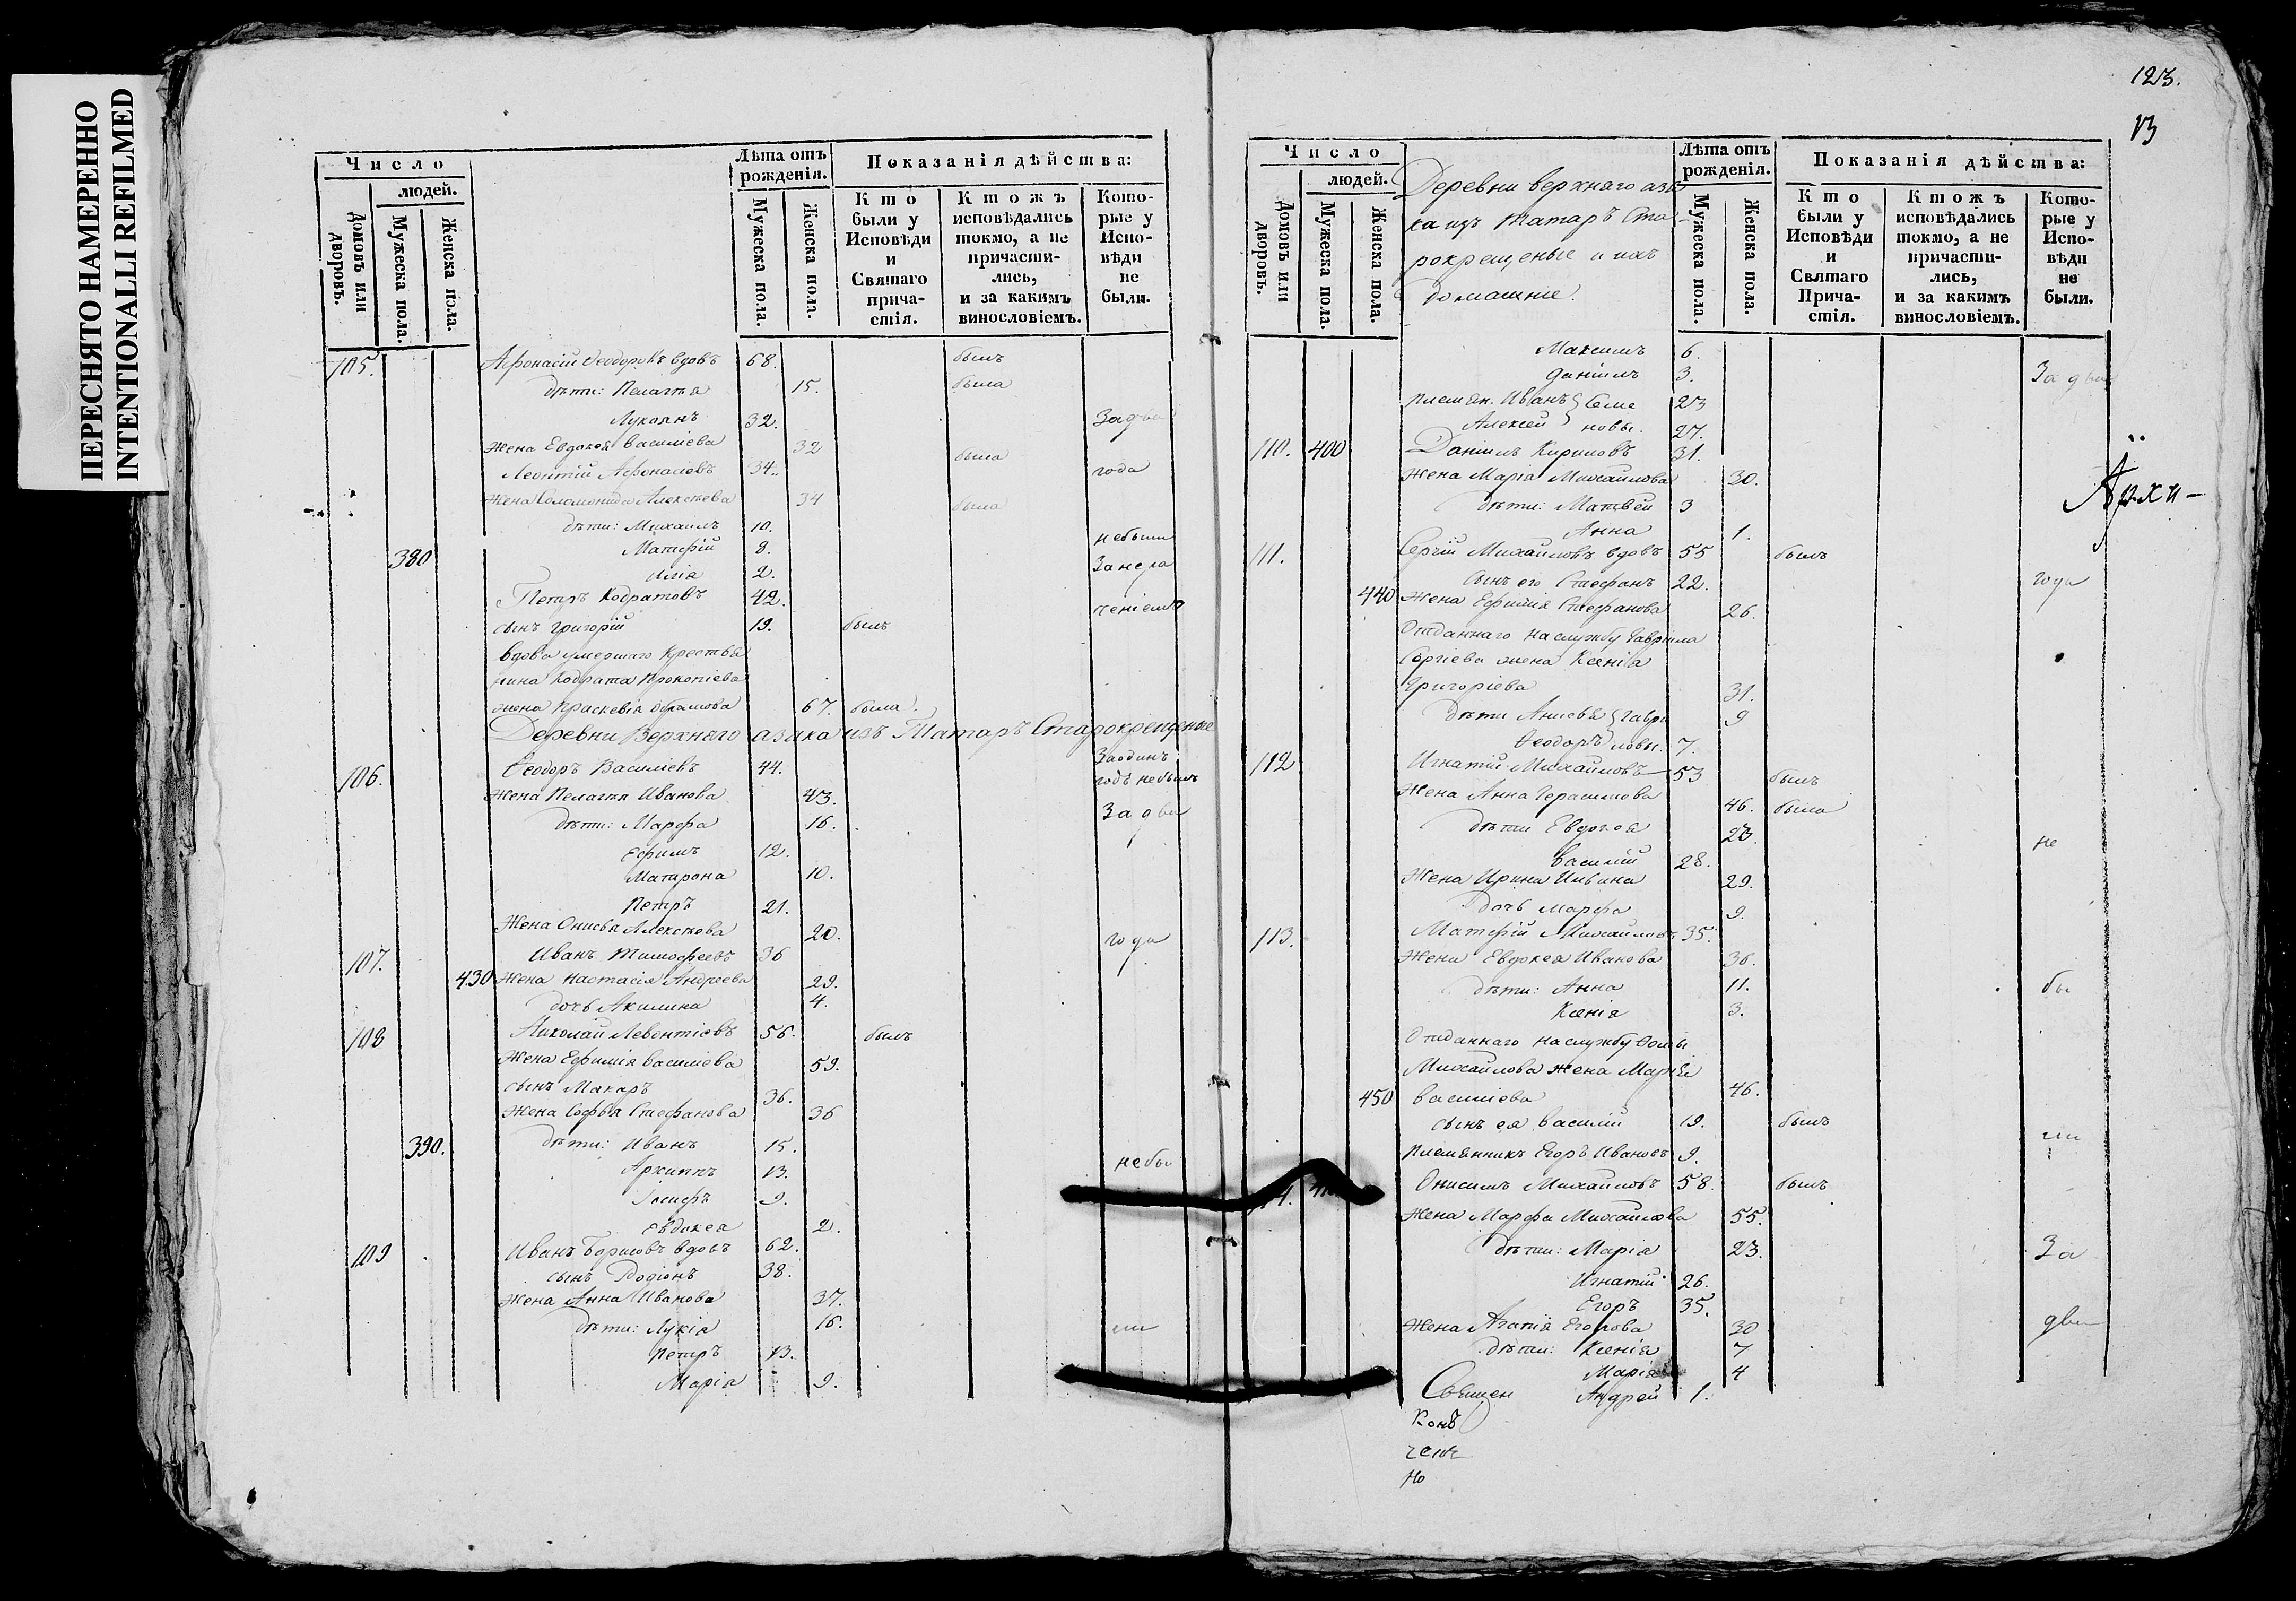 ПЕРЕСНЯТО НАМЕРЕННО
INTENTIONALLI REFILMED
Число
людей.
Домовъ или дворовъ.
Мужеска пола.
Женска пола.
Лѣта отъ рожденія.
Мужеска пола.
Женска пола.
Показанія дѣйства:
Кто были у Исповѣди и Святаго причастія.
Ктожъ исповѣдались токмо, а не причастились, и за какимъ винословіемъ.
Которые у Исповѣди не были.
105. Афонасій Ѳеодоровъ вдовъ 68. былъ
дѣти: Пелагея 15. была
Лукоянъ 32. За два
Жена Евдокея Василіева 32 была
Леонтій Афонасіевъ 34. года
Жена Соломонида Алексѣева 34 была
дѣти: Михаилъ 10. небыли
380 Матфій 8. За нера
Илія 2.
Петръ Кодратовъ 42. ченіемъ
сынъ Григорій 19. былъ
Вдова умершаго крестья
нина Кодрата Прокопіева
жена Праскевія 67. была.
Деревни Верхняго азяка изъ Татаръ Старокрещеные
106. Ѳеодоръ Василіевъ 44. За одинъ годъ небылъ
Жена Пелагея Иванова 43. За два
дѣти: Марфа 16.
Ефимъ 12.
Матрона 10.
Петръ 21.
Жена Онисья Алексѣева 20. года
107. Иванъ Тимофеевъ 36
430 Жена Настасія Андреева 29.
дочь Акилина 4.
108 Николай Левонтіевъ 56. былъ
Жена Ефимія Василіева 59.
сынъ Макаръ 36.
Жена Софья Стефанова 36
390. дѣти: Иванъ 15.
Архиппъ 13. небы
Іосифъ 9.
Евдокея 2.
109 Иванъ Борисовъ вдовъ 62.
сынъ Родіонъ 38.
Жена Анна Иванова 37.
дѣти: Лукія 16. ли
Петръ 13.
Марія 9.
123.
13
Число
людей.
Домовъ или дворовъ.
Мужеска пола.
Женска пола.
Деревни верхняго азя
ка изъ татаръ Ста
рокрещеные и ихъ
домашніе.
Лѣта отъ рожденія.
Мужеска пола.
Женска пола.
Показанія дѣйства:
Кто были у Исповѣди и Святаго Причастія.
Ктожъ исповѣдались токмо, а не причастились, и за какимъ винословіемъ.
Которые у Исповѣди не были.
Максимъ 6.
Даніилъ 3. За два
племян. Иванъ } Семе 23
Алексей } новы. 27.
110. 400 Даніилъ Кириловъ 31.
Жена Марія Михайлова 30.
Архи-
дѣти: Матвей 3
Анна 1.
111. Сергій Михайловъ вдовъ 55 былъ
сынъ его Стефанъ 22. года
440 Жена Ефимія Стефанова 26.
Отданнаго на службу Гавріила
Сергіева жена Ксенія
Григоріева 31.
дѣти Анисья } Гаври 9
Ѳеодоръ } ловы. 7.
112 Игнатій Михайловъ 53 былъ
Жена Анна Герасимова 46. была
дѣти Евдокея 23. не
Василій 28.
Жена Ирина Ильина 29.
дочь Марфа 9.
113. Матфій Михайловъ 35.
Жена Евдокея Иванова 36.
дѣти: Анна 11. бы
Ксенія 3.
Отданнаго на службу Ѳомы
Михайлова жена Марія
450 Василіева 46.
сынъ ея Василій 19. былъ
племянникъ Егоръ Ивановъ 9. ли
Онисимъ Михайловъ 58. былъ
Жена Марфа Михайлова 55.
дѣти: Марія 23. За
Игнатій 26.
Егоръ 35.
Жена Агапія Егорова 30 два
дѣти: Ксенія 7
Марія 4
Священ Андрей 1.